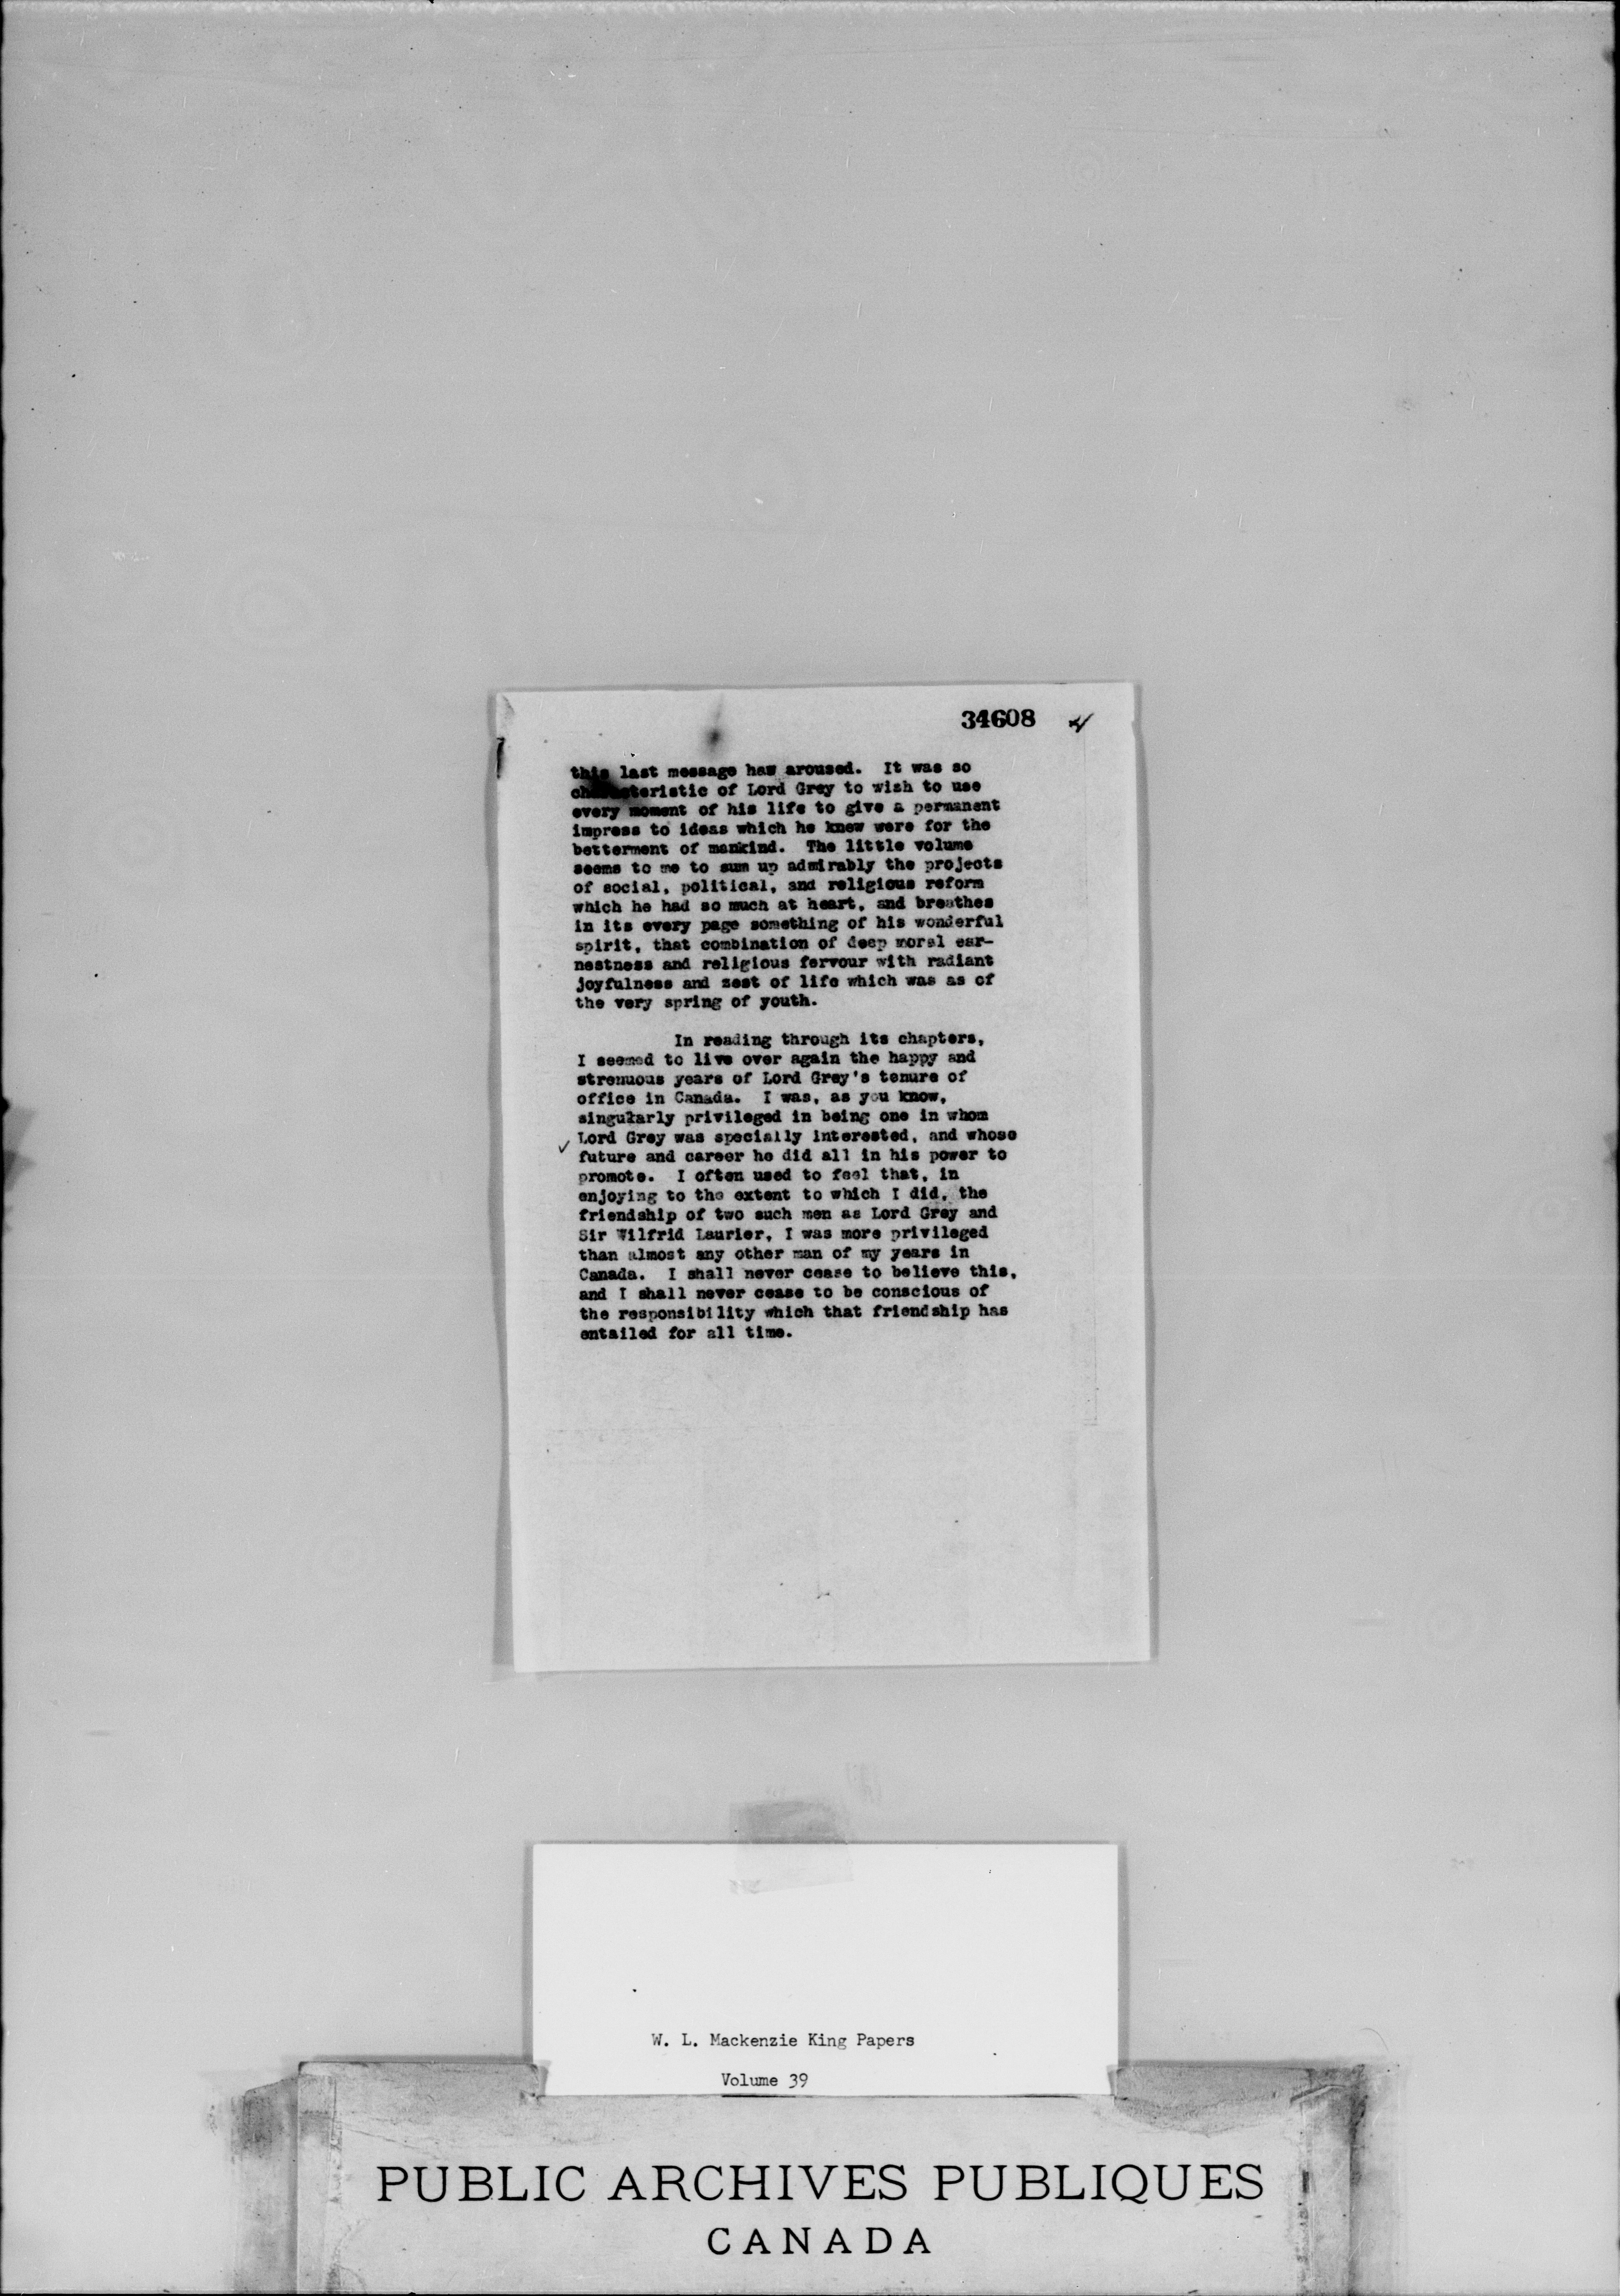 34608 4
this last message has aroused. It was so
characteristic of Lord Grey to wish to use
every moment of his life to give a permanent
impress to ideas which he knew were for the
betterment of mankind. The little volume
seems to me to sum up admirably the projects
of social, political, and religious reform
which he had so much at heart, and breathes
in its every page something of his wonderful
spirit, that combination of deep moral ear-
nestness and religious fervour with radiant
joyfulness and zest of life which was as of
the very spring of youth.
In reading through its chapters,
I seemed to live over again the happy and
strenuous years of Lord Grey's tenure of
office in Canada. I was, as you know,
singularly privileged in being one in whom
Lord Grey was specially interested, and whose
future and career he did all in his power to
promote. I often used to feel that, in
enjoying to the extent to which I did, the
friendship of two such men as Lord Grey and
Sir Wilfrid Laurier, I was more privileged
than almost any other man of my years in
Canada. I shall never cease to believe this,
and I shall never cease to be conscious of
the responsibility which that friendship has
entailed for all time.
W. L. Mackenzie King Papers
Volume 39
PUBLIC ARCHIVES PUBLIQUES
CANADA